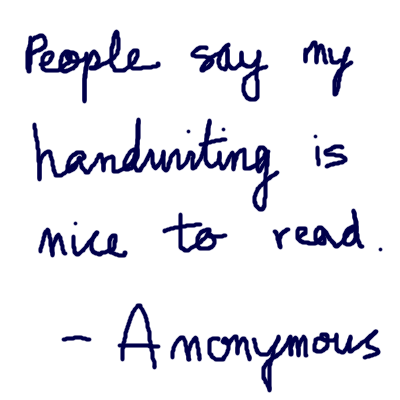 People say my
handwriting is
nice to read.
- Anonymous